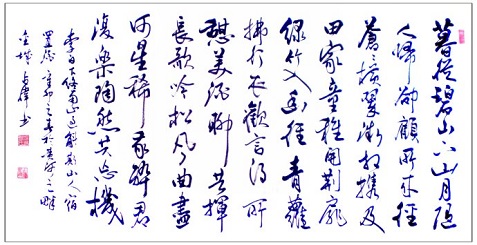 暮從碧山下山月隨
人歸卻顧所來徑
蒼蒼橫翠微相攜及
田家童稚開荊扉
綠竹入幽徑青蘿
拂行衣歡言得所
憩美酒聊共揮
長歌吟松風曲盡
河星稀我醉君
復樂陶然共忘機
李白下終南山過斛斯山人宿
置酒 之春於黃河之畔
金城 書